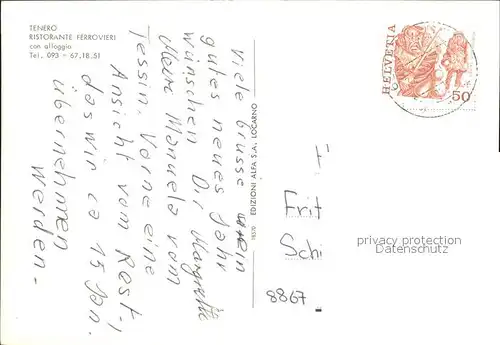 TENERO
RISTORANTE FERROVIERI
con alloggio
Tel. 093 – 67.18.51
Viele Grüsse
gutes neues Jahr
wünschen Dir Margrith
Manuela vom
Tessin. Vorne eine
Ansicht vom Rest.,
das wir ca 15 Jan.
übernehmen
werden –
18370 EDIZIONI ALFA S.A., LOCARNO
HELVETIA
50
Frit
Sch
8867
privacy protection
Datenschutz